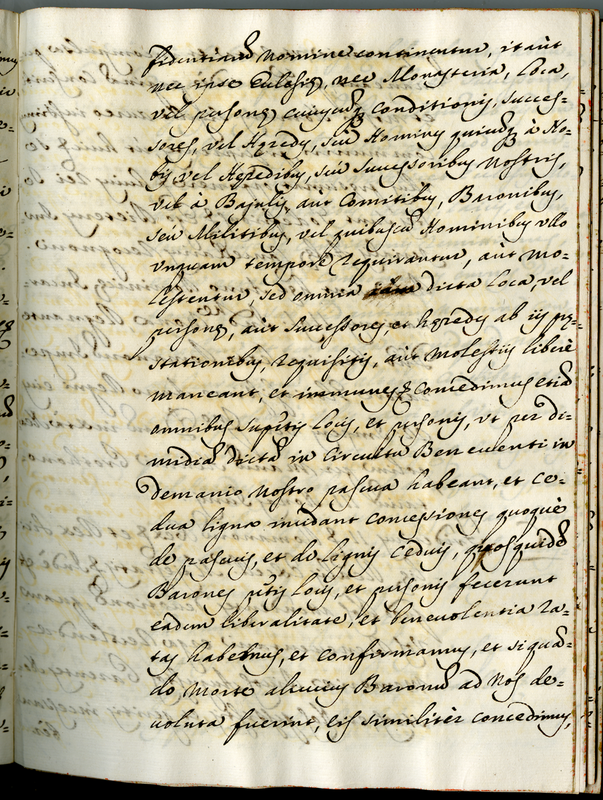 fidentiarũ nomine continentur, ita ut
nec ipsę Eclesię, nec Monasteria, Loca,
vel personę cuiuscũq conditionis, succes-
sores, vel Hęredes, seù Homines quicũq à No-
bis, vel Hęredibus, seù successoribus nostris,
vel à Bajulis, aut Comitibus, Baronibus,
seù Militibus, vel quibuscũ Hominibus vllo
vnquam tempore requirantur, aùt mo-
lestentur, sed omnia dicta Loca, vel
personę, aùt successores, et hęredes ab ijs pre-
stationibus, requisitis, aùt molestijs liberè
maneant, et immunes, et concedimus etiã
omnibus supt̃is locis, et personis, vt per di-
midiã dictã in circuitu Beneuenti in
demanio nostro pascua habeant, et ce-
dua ligna incidant concessiones quoquè
de pascuis, et de lignis ceduis, quas quidẽ
Barones pt̃is locis, et personis fecerunt
eadem liberalitate, et beneuolentia ra-
tas habemus, et confirmamus, et siquã-
do Morte alicuius Baronũ ad nos de-
uoluta fuerint, eis similitèr concedimus,